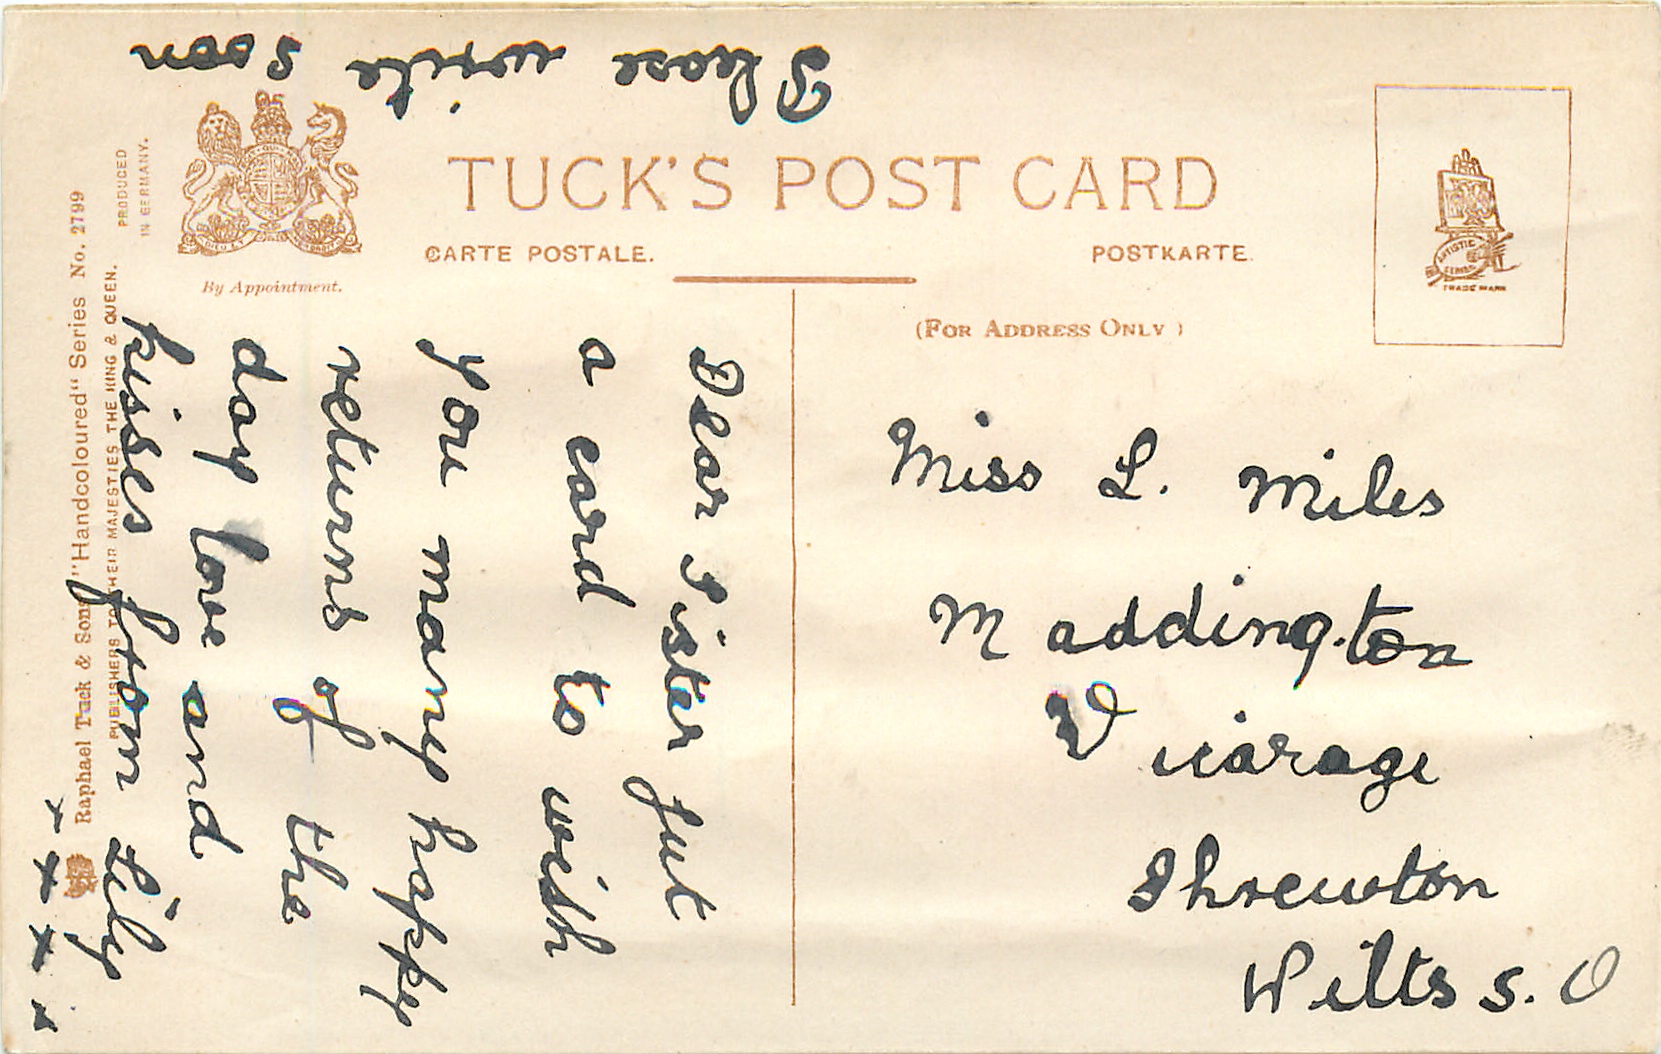 Please write soon
TUCK'S POST CARD
CARTE POSTALE.
POSTKARTE.
By Appointment.
(FOR ADDRESS ONLY)
PRODUCED
IN GERMANY.
Raphael Tuck & Sons' "Handcoloured" Series No. 2799
PUBLISHERS TO THEIR MAJESTIES THE KING & QUEEN.
ARTISTIC
SERIES
TRADE MARK
Dear Sister Just
a card to wish
you many happy
returns of the
day love and
kisses from Lily
x x x x
Miss L. Miles
Maddington
Vicarage
Shrewton
Wilts S.O